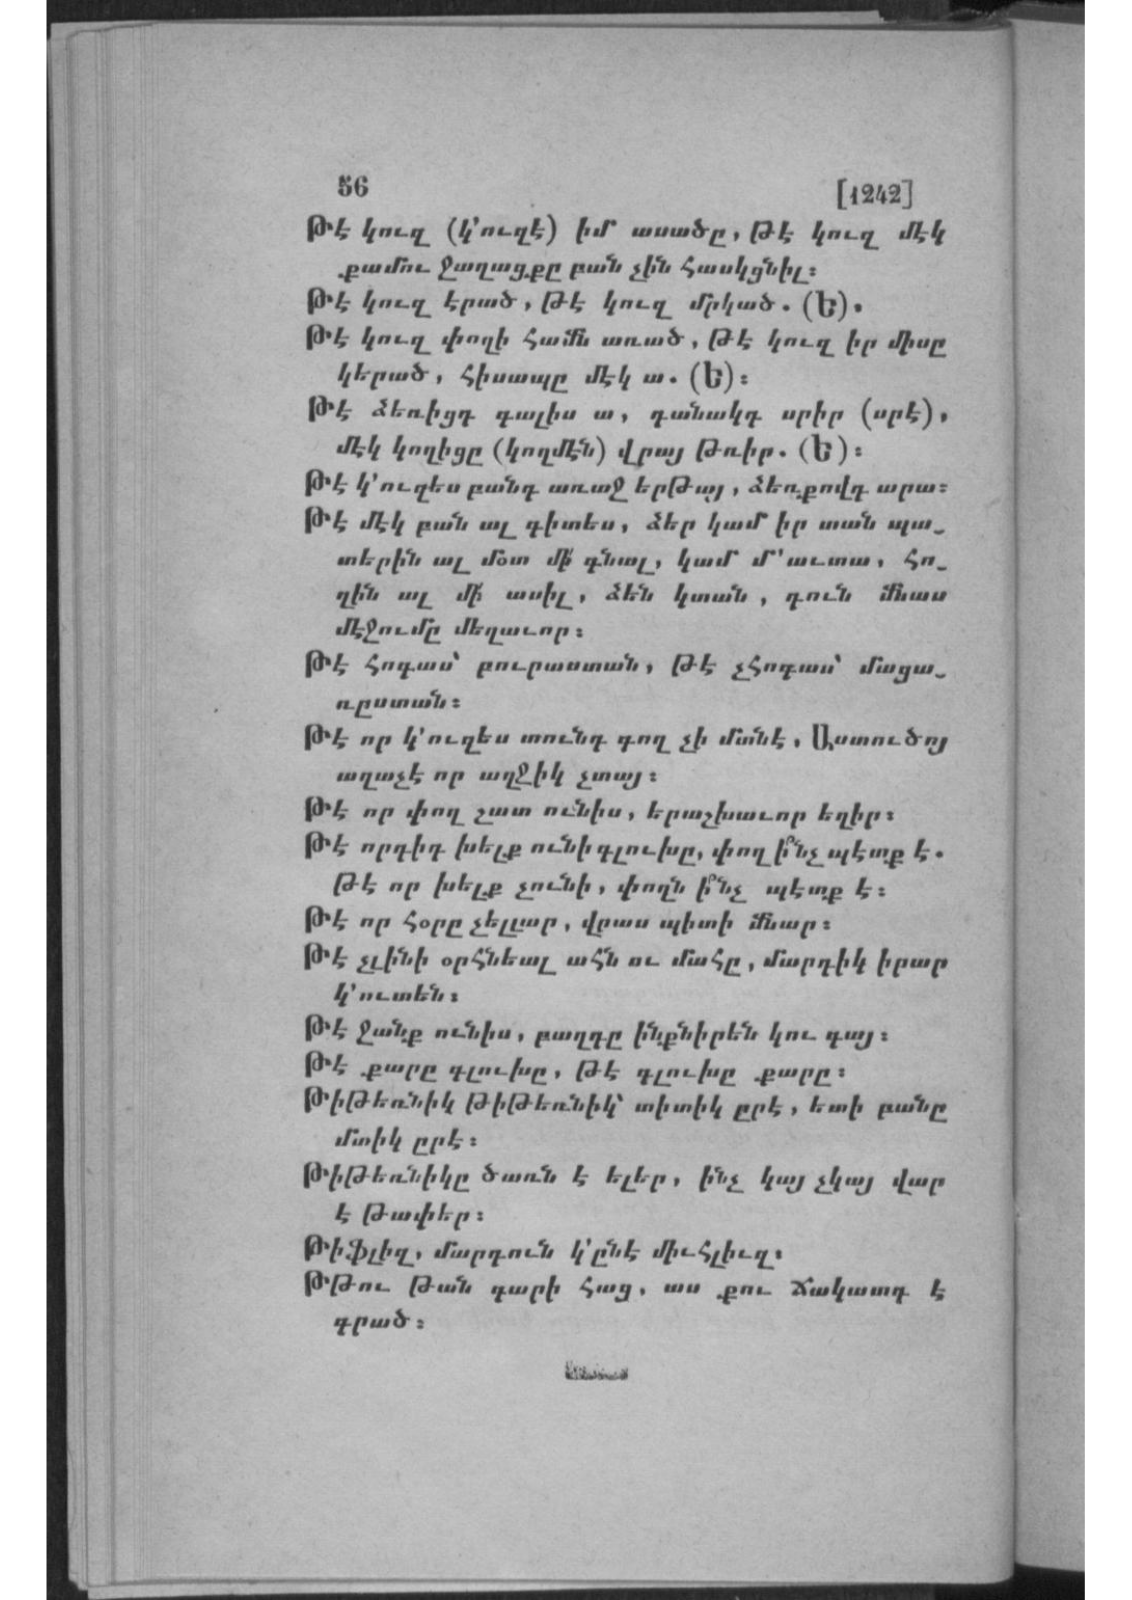 56 [1242]
Թէ կուզ (կ՚ուզէ) իմ ասածը, թէ կուզ մէկ
քամու ջաղացքը բան չին հասկցնիլ։
Թէ կուզ էրած, թէ կուզ մրկած. (Ե).
Թէ կուզ փողի համն առած, թէ կուզ իր միսը
կերած, հիսապը մէկ ա. (Ե)։
Թէ ձեռիցդ գալիս ա, դանակդ սրիր (սրէ),
մէկ կողիցը (կողմէն) վրայ թռիր. (Ե)։
Թէ կ՚ուզես բանդ առաջ երթայ, ձեռքովդ արա։
Թէ մէկ բան ալ գիտես, ձեր կամ իր տան պա-
տերին ալ մօտ մի՛ գնալ, կամ մ՚աւտա, հո-
ղին ալ մի՛ ասիլ, ձէն կտան, դուն մնաս
մէջումը մեղաւոր։
Թէ հոգաս՝ բուրաստան, թէ չհոգաս՝ մացա-
ռըստան։
Թէ որ կ՚ուզես տունդ գող չի մտնէ, Աստուծոյ
աղաչէ որ աղջիկ չտայ։
Թէ որ փող շատ ունիս, երաշխաւոր եղիր։
Թէ որդիդ խելք ունի գլուխը, փող ի՞նչ պէտք է.
Թէ որ խելք չունի, փողն ի՞նչ պէտք է։
Թէ որ հօրը չելլար, վրաս պիտի մնար։
Թէ չլինի օրհնեալ ահն ու մահը, մարդիկ իրար
կ՚ուտեն։
Թէ ջանք ունիս, բաղդը ինքնիրեն կու գայ։
Թէ քարը գլուխը, թէ գլուխը քարը։
Թիթեռնիկ թիթեռնիկ՝ տիտիկ ըրէ, ետի բանը
մտիկ ըրէ։
Թիթեռնիկը ծառն է ելեր, ինչ կայ չկայ վար
է թափեր։
Թիֆլիզ, մարդուն կ՚ընէ միւհլիւզ։
Թթու թան գարի հաց, աս քու ճակատդ է
գրած։